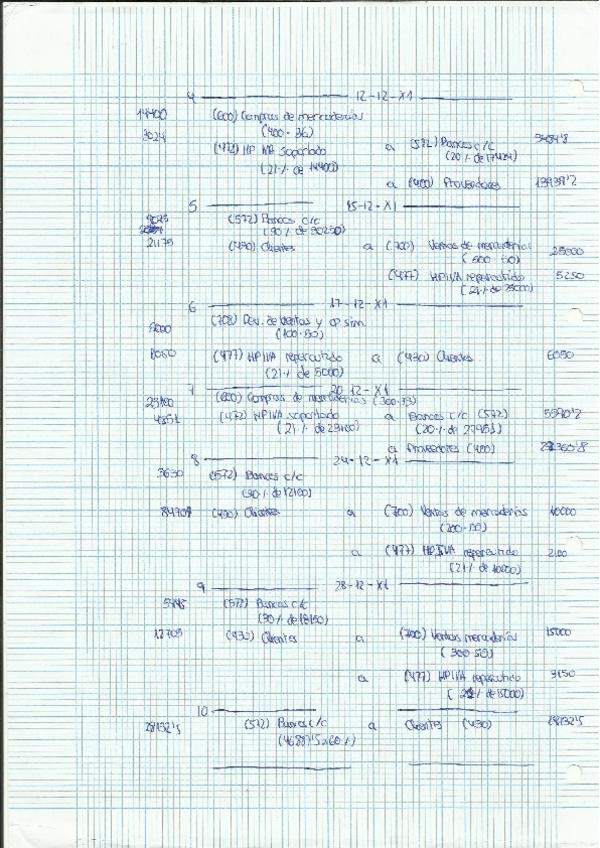 4 12-12-X1
14400 (600) Compras de mercaderías
(400·36)
3024 (472) HP IVA soportado a (572) Bancos c/c 3484'8
(21% de 14400) (20% de 17424)
a (400) Proveedores 13939'2
5 15-12-X1
9075 (572) Bancos c/c
(30% de 30250)
21175 (430) Clientes a (700) Ventas de mercaderías 25000
(500·50)
(477) HP IVA repercutido 5250
(21% de 25000)
6 17-12-X1
5000 (708) Dev. de ventas y op sim.
(100·50)
1050 (477) HP IVA repercutido a (430) Clientes 6050
(21% de 5000)
7 20-12-X1
23100 (600) Compras de mercaderías (300·77)
4851 (472) HP IVA soportado a Bancos c/c (572) 5590'2
(21% de 23100) (20% de 27951)
a Proveedores (400) 22360'8
8 24-12-X1
3630 (572) Bancos c/c
(30% de 12100)
8470 (430) Clientes a (700) Ventas de mercaderías 10000
(200·50)
a (477) HP IVA repercutido 2100
(21% de 10000)
9 28-12-X1
5445 (572) Bancos c/c
(30% de 18150)
12705 (430) Clientes a (700) Ventas mercaderías 15000
(300·50)
a (477) HP IVA repercutido 3150
(21% de 15000)
10
28132'5 (572) Bancos c/c a Clientes (430) 28132'5
(46887'5 x 60%)